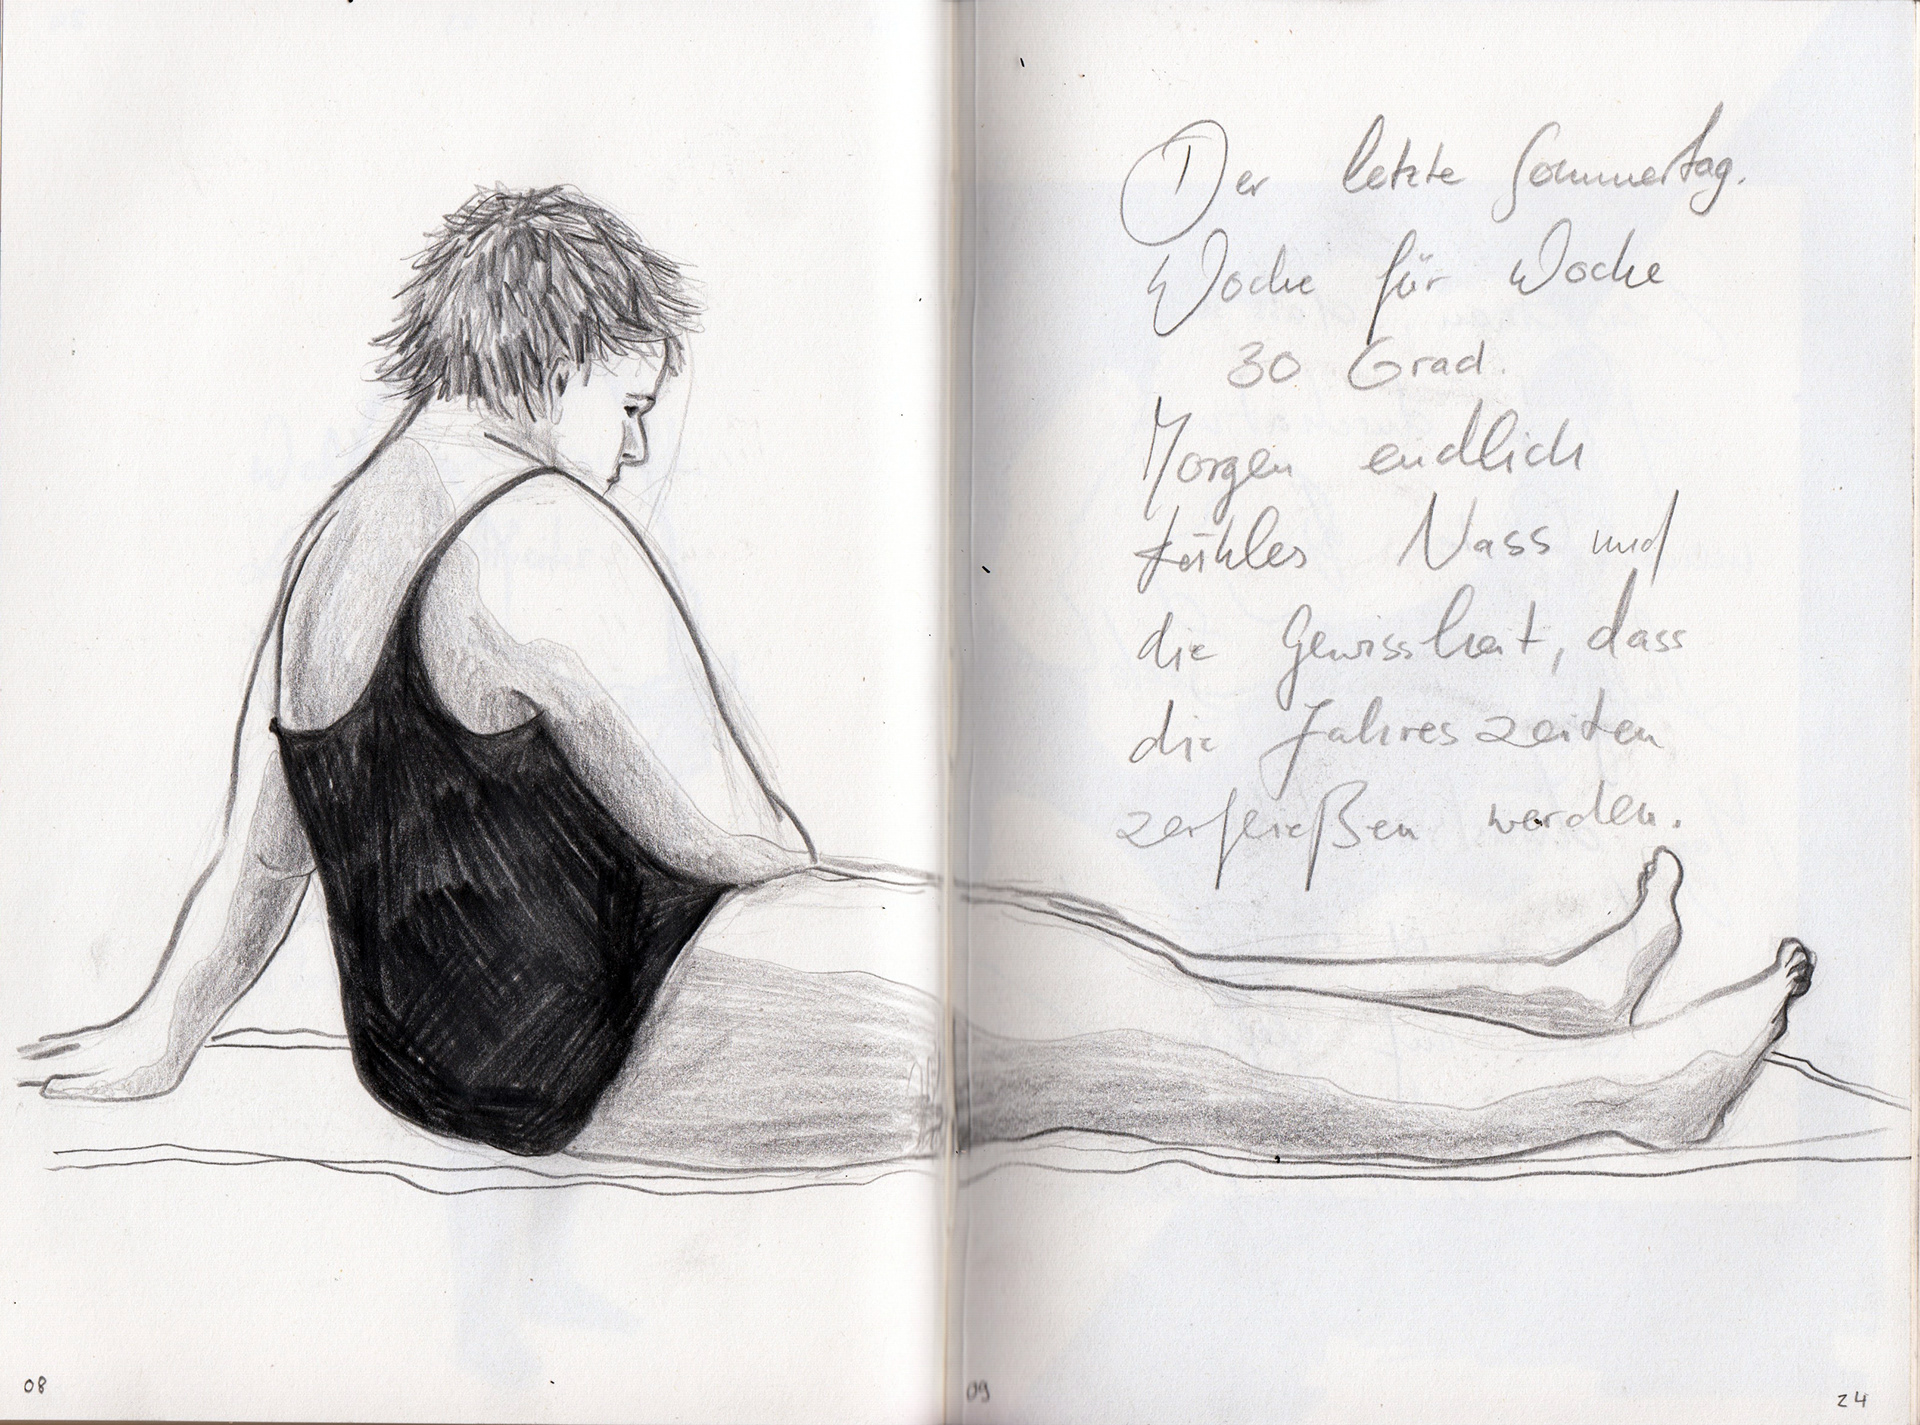 Der letzte Sommertag.
Woche für Woche
30 Grad.
Morgen endlich
kühles Nass und
die Gewissheit, dass
die Jahreszeiten
zerfließen werden.
08 09 24